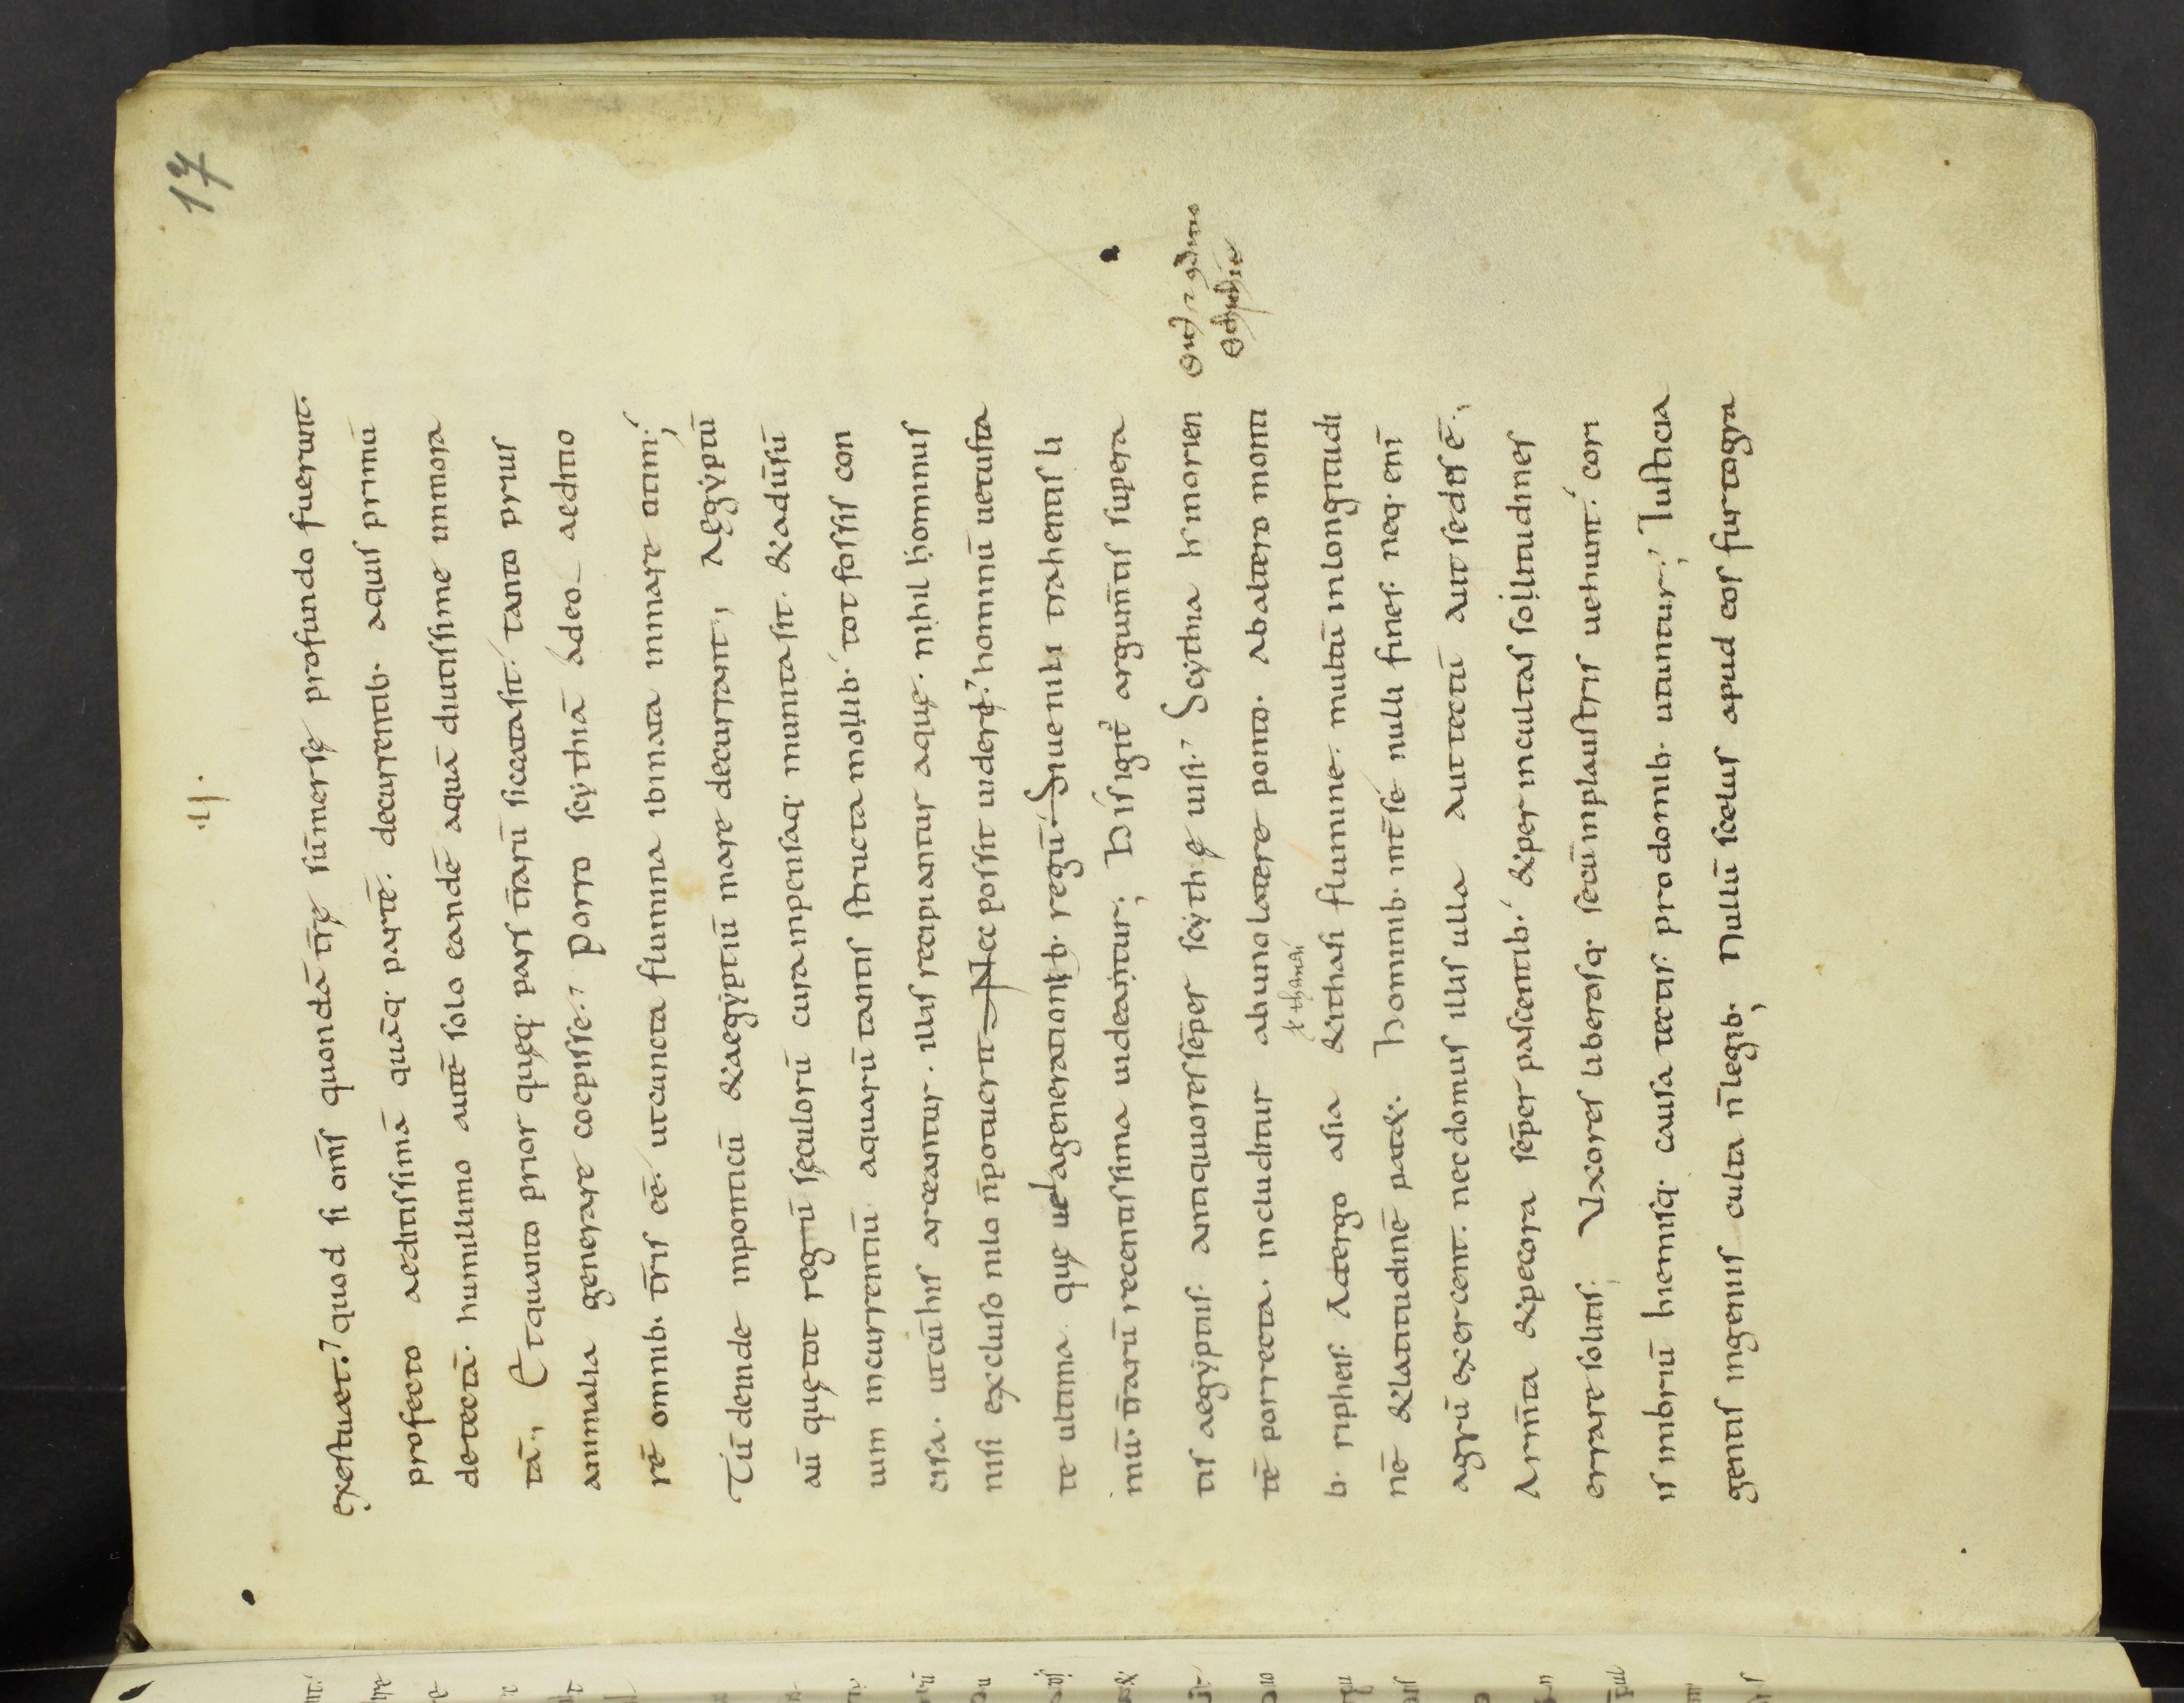 17
.II.
exestuaet. quod si om̄s quondā tr̄ę sūmersę profundo fuerunt.
profecto aeditissimā quāq; partē. decurrentib. aquis primū
detectā. humillimo autē solo eandē aquā diutissime inmora
tā., Et quanto prior quęq; pars tr̄arū siccata sit. tanto prius
animalia generare coepisse. Porro scythiā adeo aeditio
rē omnib. tr̄is eē. ut cuncta flumina ibi nata in mare otim;
Tū deinde inponticū & aegyptiū mare decurrant, Aegyptū
aū quę tot regū sęculorū cura inpensaq; munita sit. & aduīsū
uim incurrentiū aquarū tantis structa molib. tot fossis con
cisa. ut cū his arceantur. illis recipiantur aquę. nihil hominus
nisi excluso nilo n̄potuerit Nec possit uiderę hominū uetusta
te ultima quę uel agenerationib. regū. Siue nili trahentis li
mū. tr̄arū recentissima uideantur; His igit argum̄tis supera
tis aegyptiis. antiquiores sēper scythę uisi. Scythia h̄ in orien
tē porrecta. includitur ab uno latere ponto. Ab altero monti
b. ripheis. A tergo asia & ithasi flumine. multū in longitudi
& thanai
nē & latitudinē patet. Hominib. int̄ sé nulli fines. neq; enī
agrū exercent. nec domus illis ulla aut tectū aut sedis ē.,
Arm̄ta & pecora sēper pascentib. & per incultas solitudines
errare solitis; Uxores liberosq; secū in plaustris uehunt. cori
is imbriū hiemisq; causa tectis. pro domib. utuntur; Iusticia
gentis ingeniis culta n̄ legib; Nullū scelus apud eos furto gra